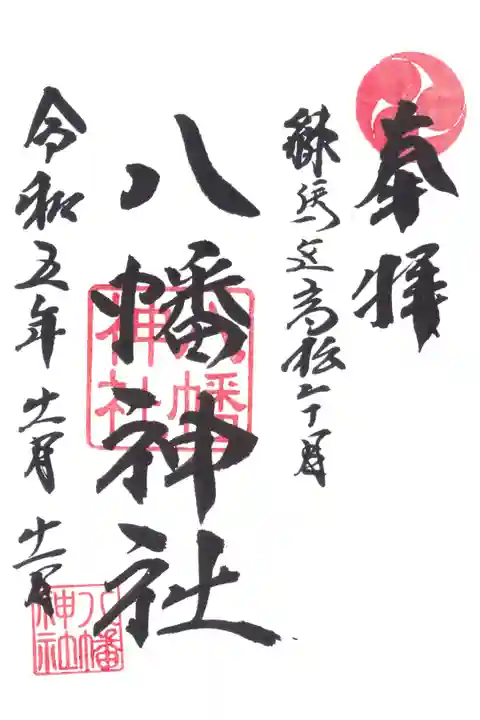 奉拝
練馬区高松丁目
八幡神社
八幡神社
令和五年十一月十一日
八幡神社